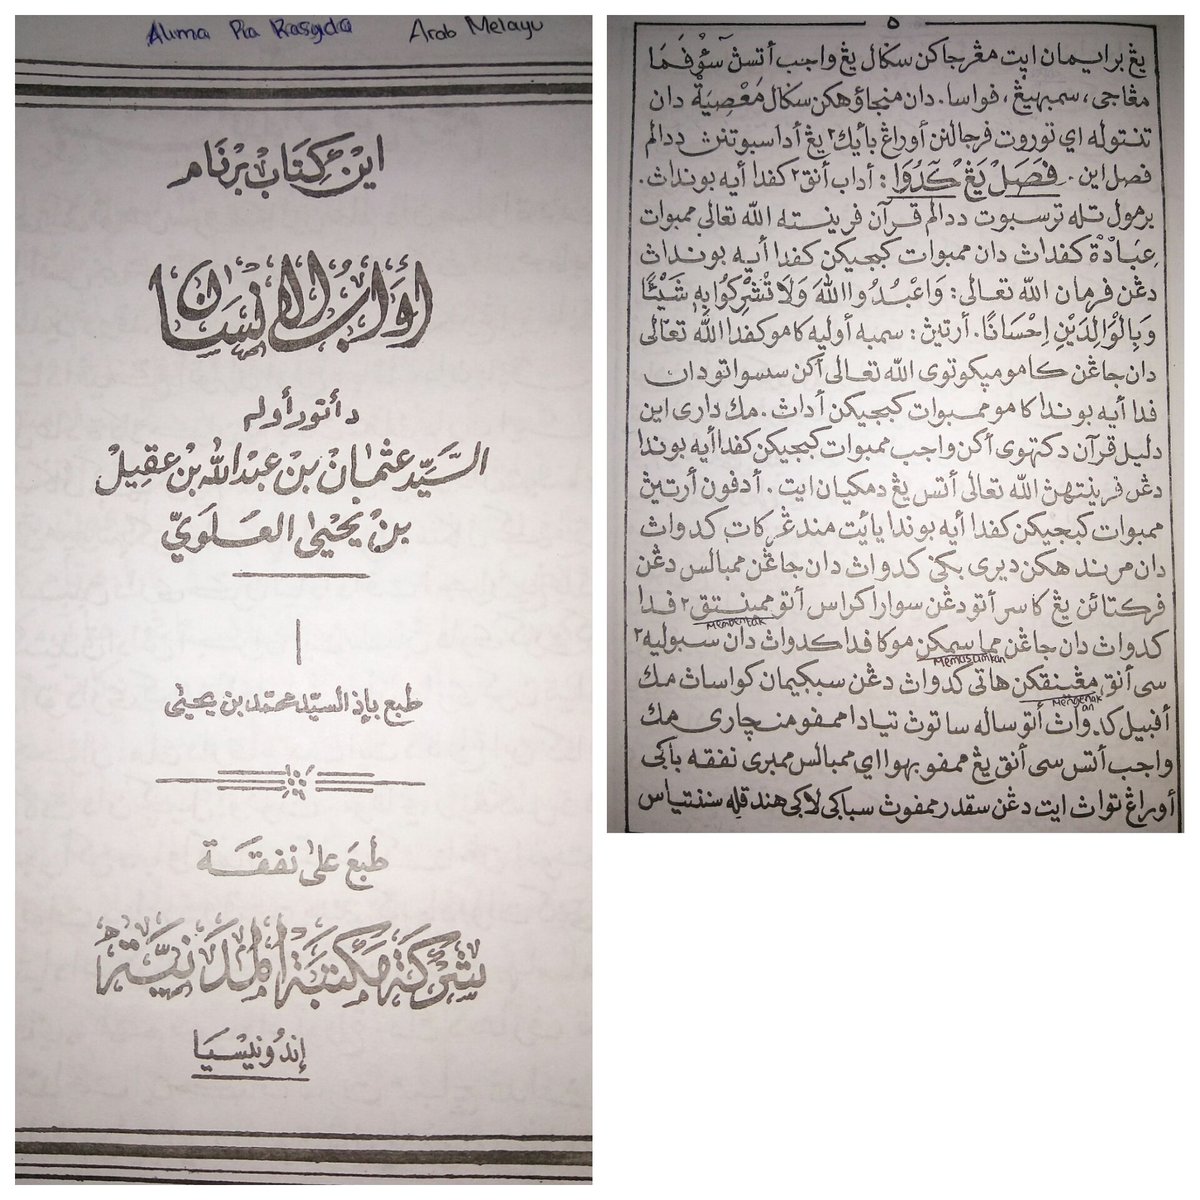 Alima Pia Rasyida Arab Melayu
اين كتاب برنام
أداب الإنسان
دأتور أوله
السيّد عثمان بن عبدالله بن عقيل
بن يحيى العلويّ
١
طبع بإذن السيّد محمّد بن يحيى
طبع على نفقة
شركة مكتبة المدنية
إندونيسيا
٥
يڠ برايمان ايت مڠرجاكن سكال يڠ واجب أتسڽ سؤفما
مڠاجي، سمبهيڠ، فواسا. دان منجاؤهكن سكال مَعْصِيَةْ دان
تنتوله اي توروت فرجالنن أوراڠ بأيك٢ يڠ أدا سبوتنڽ ددالم
فصل اين. فَصَلْ يَڠْ كَدُوَا: أداب أنق٢ كفدا أيه بونداڽ.
برمول تله ترسبوت ددالم قرآن فرينته الله تعالى ممبوات
عِبَادَةْ كفداڽ دان ممبوات كبجيكن كفدا أيه بونداڽ
دڠن فرمان الله تعالى: وَاعْبُدُوا اللهَ وَلَا تُشْرِكُوا بِهِ شَيْئًا
وَبِالْوَالِدَيْنِ اِحْسَانًا. أرتيڽ: سمبه أوليه كامو كفدا الله تعالى
دان جاڠن كامو ميكوتوي الله تعالى أكن سسواتو دان
فدا أيه بوندا كامو ممبوات كبجيكن أداڽ. مك داري اين
دليل قرآن دكتهوي أكن واجب ممبوات كبجيكن كفدا أيه بوندا
دڠن فرينتهن الله تعالى أتس يڠ دمكيان ايت. أدفون أرتيڽ
ممبوات كبجيكن كفدا أيه بوندا يأيت مندڠر كات كدواڽ
دان مرندهكن ديري بكي كدواڽ دان جاڠن ممبالس دڠن
فركتائن يڠ كاسر أتو دڠن سوارا كراس أتو ممبنتق٢ فدا
Membentak
كدواڽ دان جاڠن مماسمكن موكا فدا كدواڽ دان سبوليه٢
Memasamkan
سي أنق مڠنقكن هاتي كدواڽ دڠن سبكيمان كواساڽ مك
Mengenak
an
أفبيل كدواڽ أتو ساله ساتوڽ تيادا ممفو منچاري مك
واجب أتس سي أنق يڠ ممفو بهوا اي ممبالس ممبري نفقه باكي
أوراڠ تواڽ ايت دڠن سقدر ممفوڽ سباكي لاكي هندقله سنتياس